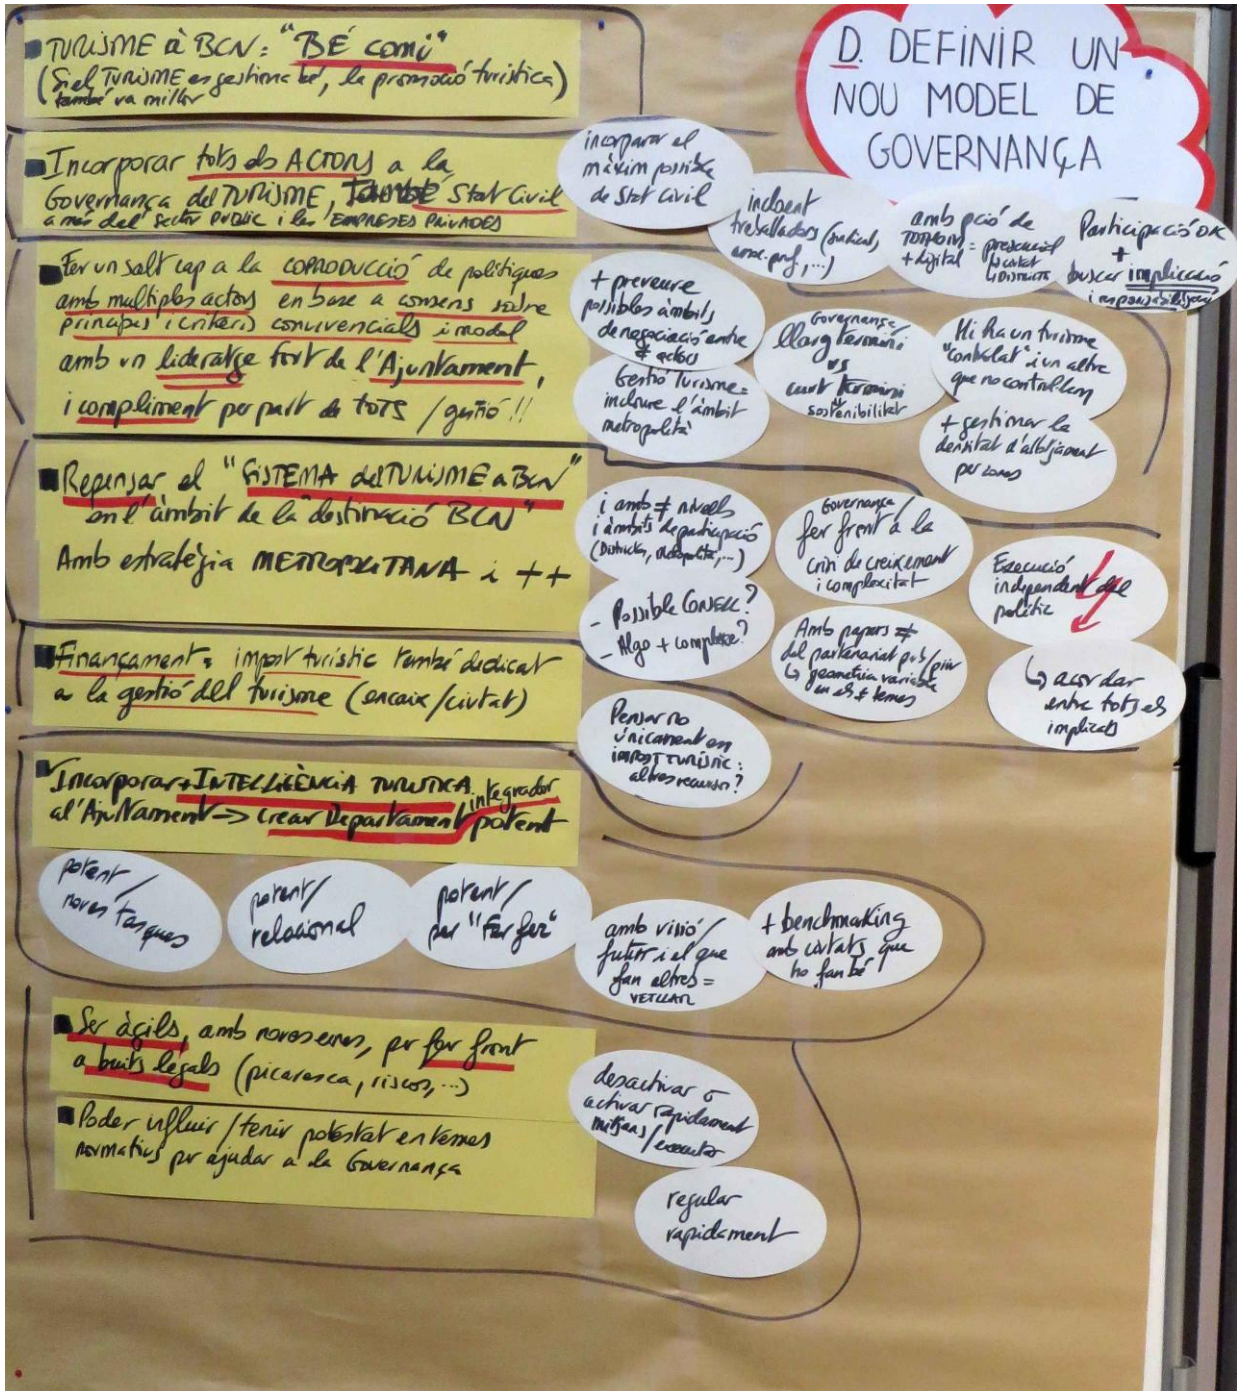 D. DEFINIR UN
NOU MODEL DE
GOVERNANÇA
TURISME a BCN: "BÉ comú"
(Si el TURISME es gestiona bé, la promoció turística)
també va millor
Incorporar tots els ACTORS a la
Governança del TURISME, TAMBÉ Stat Civil
a més del sector PÚBLIC i les EMPRESES PRIVADES
incorporar el
màxim possible
de Stat Civil
incloent
treballadors (sindicats,
assoc. prof, ...)
amb pció de
TOTHOM = presencial
+ digital
↳ ciutat
↳ Districte
Participació OK
+
buscar implicació
i responsabilitzac
Fer un salt cap a la COPRODUCCIÓ de polítiques
amb multiples actors en base a consens sobre
principis i criteris convivencials i model
amb un lideratge fort de l'Ajuntament,
i compliment per part de TOTS / gestió!!
+ preveure
possibles àmbits
de negociació entre
≠ actors
Gestió Turisme =
incloure l'àmbit
metropolità
Governança/
llarg termini
vs
curt termini
sostenibilitat
Hi ha un turisme
"controlat" i un altre
que no controllem
+ gestionar la
densitat d'allotjament
per zones
Repensar el "SISTEMA del TURISME a BCN"
en l'àmbit de la destinació BCN"
Amb estratègia METROPOLITANA i ++
i amb ≠ nivells
i àmbits de participació
(Districtes, Metropolità, ...)
- Possible CONSELL?
- Algo + complexe?
Governança/
fer front a la
crisi de creixement
i complexitat
Amb papers ≠
del partenariat pub/priv
↳ geometria variable
en els ≠ temes
Execució
independent del
polític
↳ acordar
entre tots els
implicats
Finançament = impost turístic també dedicat
a la gestió del turisme (encaix/ciutat)
Pensar no
únicament en
impost turístic:
altres recursos?
Incorporar + INTEL·LIGÈNCIA TURÍSTICA
al'Ajuntament -> crear Departament integrador potent
potent/
noves tasques
potent/
relacional
potent/
per "Fer fer"
amb visió/
futur i el que
fan altres =
VETLLAR
+ benchmarking
amb ciutats que
ho fan bé
Ser àgils, amb noves eines, per fer front
a buits légals (picaresca, riscos, ...)
Poder influir / tenir potestat en temes
normatius per ajudar a la Governança
desactivar o
activar rapidament
mitjans / executar
regular
rapidament